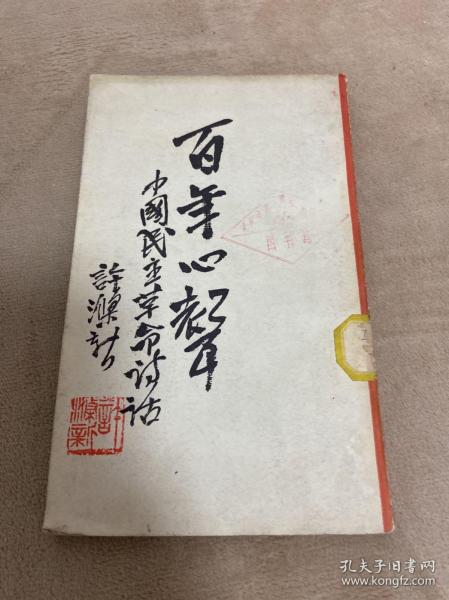 百年心聲
中國民主革命诗话
許滌新
孔夫子旧书网
www.kongfz.com